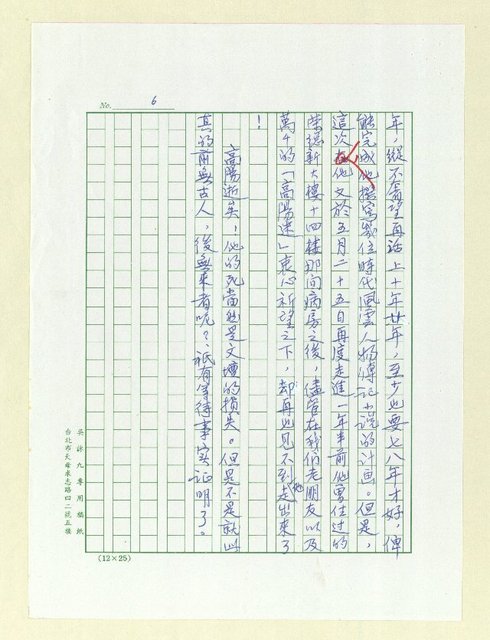 No. 6
年，縱不奢望再活上十年廿年，至少也要七八年才好，俾
能完成他撰寫幾位時代風雲人物傳記小說的計画。但是，
這次他又於五月二十五日再度走進一年半前他曾住過的
榮總新大樓十四樓那间病房之後，儘管在我们老朋友以及
萬千的「高陽迷」衷心祈望之下，却再也見不到他走出來了
！
高陽逝矣！他的死當然是文壇的損失。但是不是就此
真的前無古人，後無來者呢？祇有等待事实証明了。
吳詠九專用稿紙
台北市天母東志路四二號五樓
(12×25)